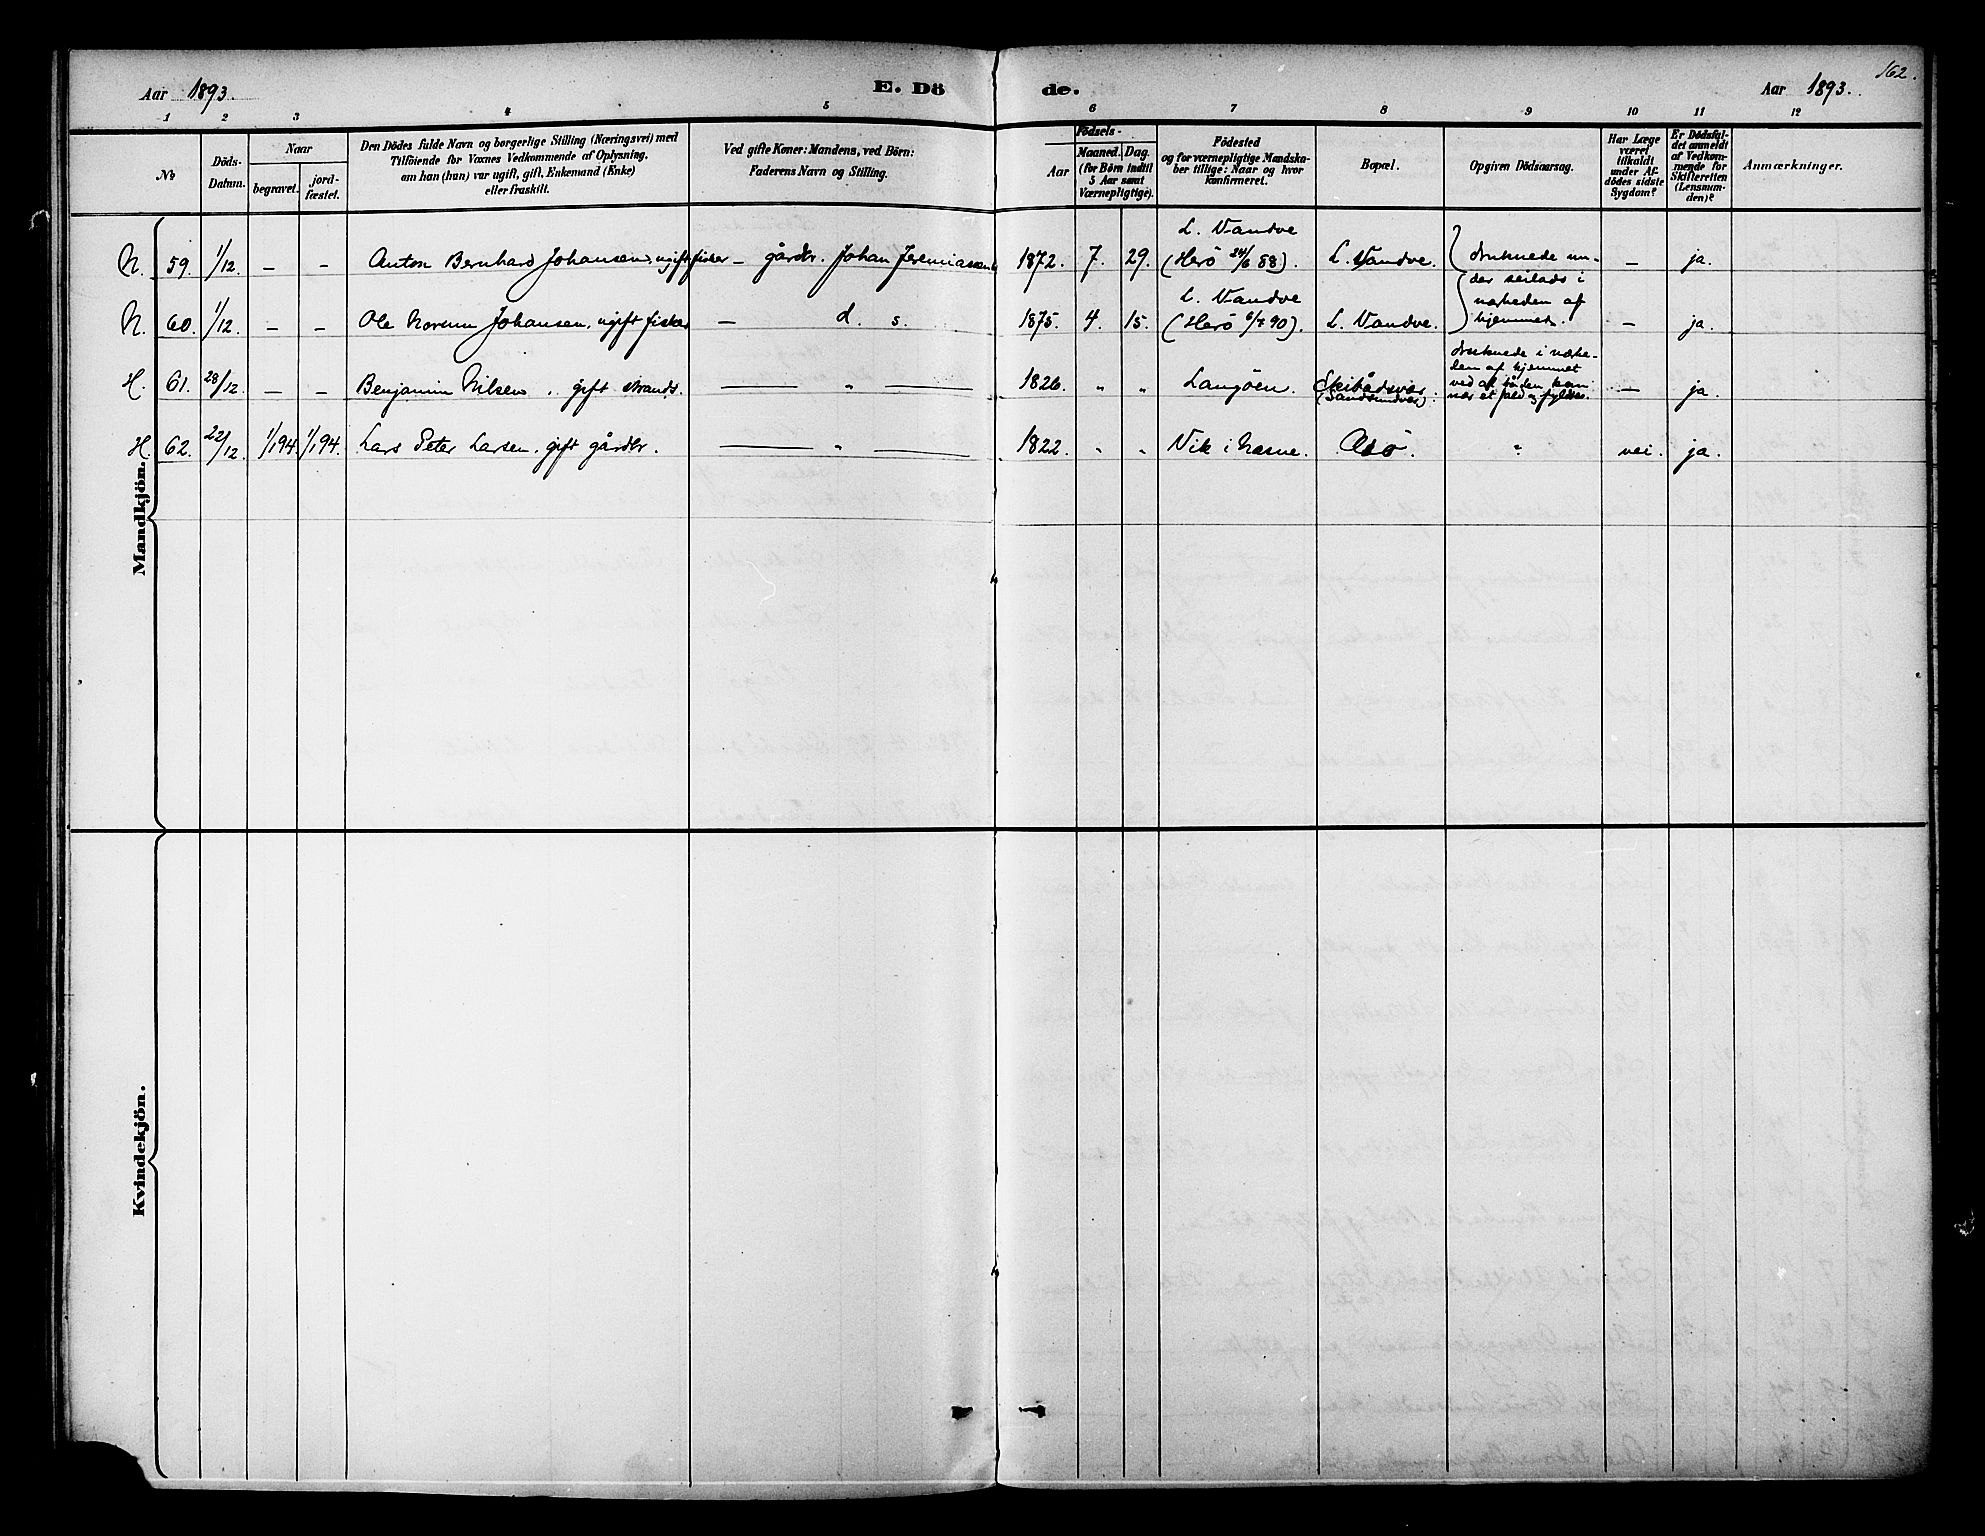 162.
Aar 1893. E. Dö de. Aar 1893.
1 2 3 4 5 6 7 8 9 10 11 12
No
Döds-Datum.
Naar
begravet. jord-fæstet.
Den Dödes fulde Navn og borgerlige Stilling (Næringsvei) med
Tilföiende for Voxnes Vedkommende af Oplysning,
om han (hun) var ugift, gift, Enkemand (Enke)
eller fraskilt.
Ved gifte Koner: Mandens, ved Börn:
Faderens Navn og Stilling.
Födsels-
Aar
Maaned. Dag.
(for Börn indtil
5 Aar samt
Værnepligtige).
Födested
og for værnepligtige Mandska-
ber tillige: Naar og hvor
konfirmeret.
Bopæl.
Opgiven Dödsaarsag.
Har Læge
været
tilkaldt
under Af-
dödes sidste
Sygdom?
Er Dödsfal-
det anmeldt
af Vedkom-
mende for
Skifteretten
(Lensman-
den)?
Anmærkninger.
Mandkjön.
N. 59. 1/12. – – Anton Bernhard Johansen, ugift fisker – gårdbr. Johan Jeremiassen 1872. 7. 29. L. Vandve (Herö 24/6 88). L. Vandve. druknede un-
der seilads i
nærheden af
hjemmet. – ja.
N. 60. 1/12. – – Ole Norum Johansen, ugift fisker – d. s. 1875. 4. 15. L. Vandve (Herö 6/7 90). L. Vandve. – ja.
H. 61. 28/12. – – Benjamin Nilsen, gift strands. — " — 1826. " " Langöen. Skibådsvær (Sandsundvær). druknede i nærhe-
den af hjemmet
ved at båden kom
nær et fald og fyldtes. – ja.
H. 62. 22/12 1/1 94. 1/1 94. Lars Peter Larsen, gift gårdbr. — " — 1822. " " Vik i Næsne. Asö. " nei. ja.
Kvindekjön.